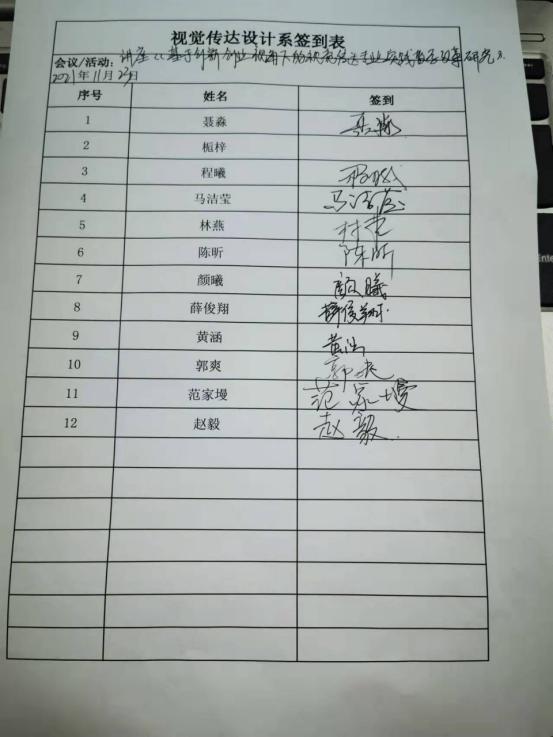 视觉传达设计系签到表
会议/活动：讲座《基于创新创业视角下的视觉传达专业实践教学改革研究》
2021年11月23日
序号 姓名 签到
1 聂淼 聂淼
2 栀梓
3 程曦 程曦
4 马洁莹 马洁莹
5 林燕 林燕
6 陈昕 陈昕
7 颜曦 颜曦
8 薛俊翔 薛俊翔
9 黄涵 黄涵
10 郭爽 郭爽
11 范家墁 范家墁
12 赵毅 赵毅